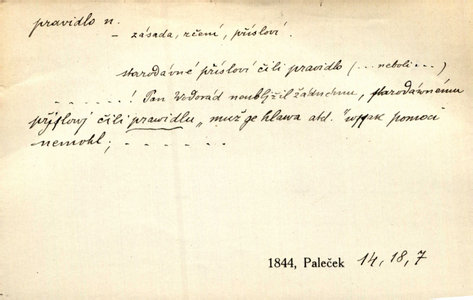 pravidlo n.
– zásada, rčení, přísloví.
starodávné přísloví čili pravidlo (...neboli...)
- - - - - -! Pan Vodorád neublížil žádnému, starodávnému
přjslowj čili prawidlu „muž ge hlawa atd." wssak pomoci
nemohl; - - - - - -
1844, Paleček 14, 18, 7